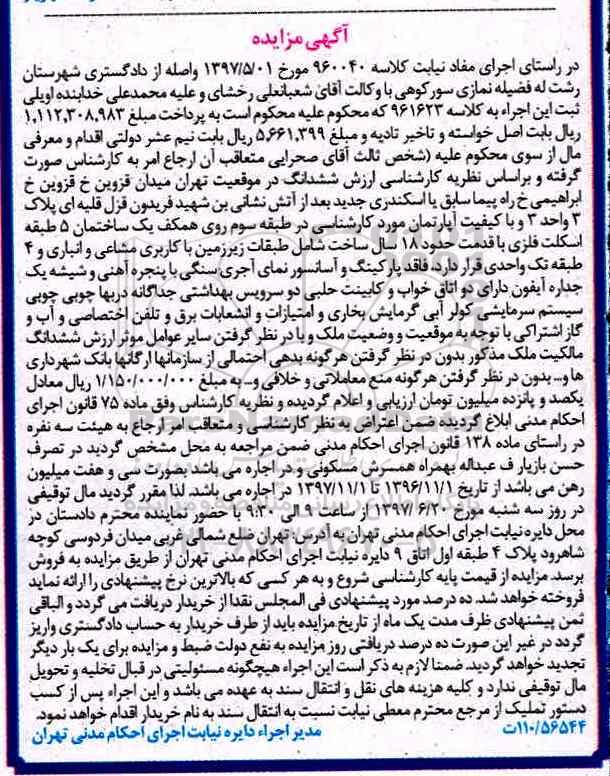 آگهی مزایده
در راستای اجرای مفاد نیابت کلاسه ۹۶۰۰۴۰ مورخ ۱۳۹۷/۵/۰۱ واصله از دادگستری شهرستان
رشت له فضیله نمازی سورکوهی با وکالت آقای شعبانعلی رخشای و علیه محمدعلی خدابنده اویلی
ثبت این اجراء به کلاسه ۹۶۱۶۲۳ که محکوم علیه محکوم است به پرداخت مبلغ ۱,۱۱۲,۳۰۸,۹۸۳
ریال بابت اصل خواسته و تاخیر تادیه و مبلغ ۵,۶۶۱,۳۹۹ ریال بابت نیم عشر دولتی اقدام و معرفی
مال از سوی محکوم علیه (شخص ثالث آقای صحرایی متعاقب آن ارجاع امر به کارشناس صورت
گرفته و براساس نظریه کارشناسی ارزش ششدانگ در موقعیت تهران میدان قزوین خ قزوین خ
ابراهیمی خ راه پیما سابق یا اسکندری جدید بعد از آتش نشانی بن شهید فریدون قزل قلبه ای پلاک
۳ واحد ۳ و با کیفیت آپارتمان مورد کارشناسی در طبقه سوم روی همکف یک ساختمان ۵ طبقه
اسکلت فلزی با قدمت حدود ۱۸ سال ساخت شامل طبقات زیرزمین با کاربری مشاعی و انباری و ۴
طبقه تک واحدی قرار دارد، فاقد پارکینگ و آسانسور نمای آجری سنگی با پنجره آهنی و شیشه یک
جداره آیفون دارای دو اتاق خواب و کابینت حلبی دو سرویس بهداشتی جداگانه دربها چوبی چوبی
سیستم سرمایشی کولر آبی گرمایش بخاری و امتیازات و انشعابات برق و تلفن اختصاصی و آب و
گاز اشتراکی با توجه به موقعیت و وضعیت ملک و با در نظر گرفتن سایر عوامل موثر ارزش ششدانگ
مالکیت ملک مذکور بدون در نظر گرفتن هرگونه بدهی احتمالی از سازمانها ارگانها بانک شهرداری
ها و... بدون در نظر گرفتن هرگونه منع معاملاتی و خلافی و... به مبلغ ۱/۱۵۰/۰۰۰/۰۰۰ ریال معادل
یکصد و پانزده میلیون تومان ارزیابی و اعلام گردیده و نظریه کارشناس وفق ماده ۷۵ قانون اجرای
احکام مدنی ابلاغ گردیده ضمن اعتراض به نظر کارشناسی و متعاقب امر ارجاع به هیئت سه نفره
در راستای ماده ۱۳۸ قانون اجرای احکام مدنی ضمن مراجعه به محل مشخص گردید در تصرف
حسن بازیار ف عبداله بهمراه همسرش مسکونی و در اجاره می باشد بصورت سی و هفت میلیون
رهن می باشد از تاریخ ۱۳۹۶/۱۱/۱ تا ۱۳۹۷/۱۱/۱ در اجاره می باشد. لذا مقرر گردید مال توقیفی
در روز سه شنبه مورخ ۱۳۹۷/۶/۲۰ از ساعت ۹ الی ۹:۳۰ با حضور نماینده محترم دادستان در
محل دایره نیابت اجرای احکام مدنی تهران به آدرس: تهران ضلع شمالی غربی میدان فردوسی کوچه
شاهرود پلاک ۴ طبقه اول اتاق ۹ دایره نیابت اجرای احکام مدنی تهران از طریق مزایده به فروش
برسد. مزایده از قیمت پایه کارشناسی شروع و به هر کسی که بالاترین نرخ پیشنهادی را ارائه نماید
فروخته خواهد شد. ده درصد مورد پیشنهادی فی المجلس نقدا از خریدار دریافت می گردد و الباقی
ثمن پیشنهادی ظرف مدت یک ماه از تاریخ مزایده باید از طرف خریدار به حساب دادگستری واریز
گردد در غیر این صورت ده درصد دریافتی روز مزایده به نفع دولت ضبط و مزایده برای یک بار دیگر
تجدید خواهد گردید. ضمنا لازم به ذکر است این اجراء هیچگونه مسئولیتی در قبال تخلیه و تحویل
مال توقیفی ندارد و کلیه هزینه های نقل و انتقال سند به عهده می باشد و این اجراء پس از کسب
دستور تملیک از مرجع محترم معطی نیابت نسبت به انتقال سند به نام خریدار اقدام خواهد نمود.
۱۱۰/۵۶۵۴۴ت مدیر اجراء دایره نیابت اجرای احکام مدنی تهران